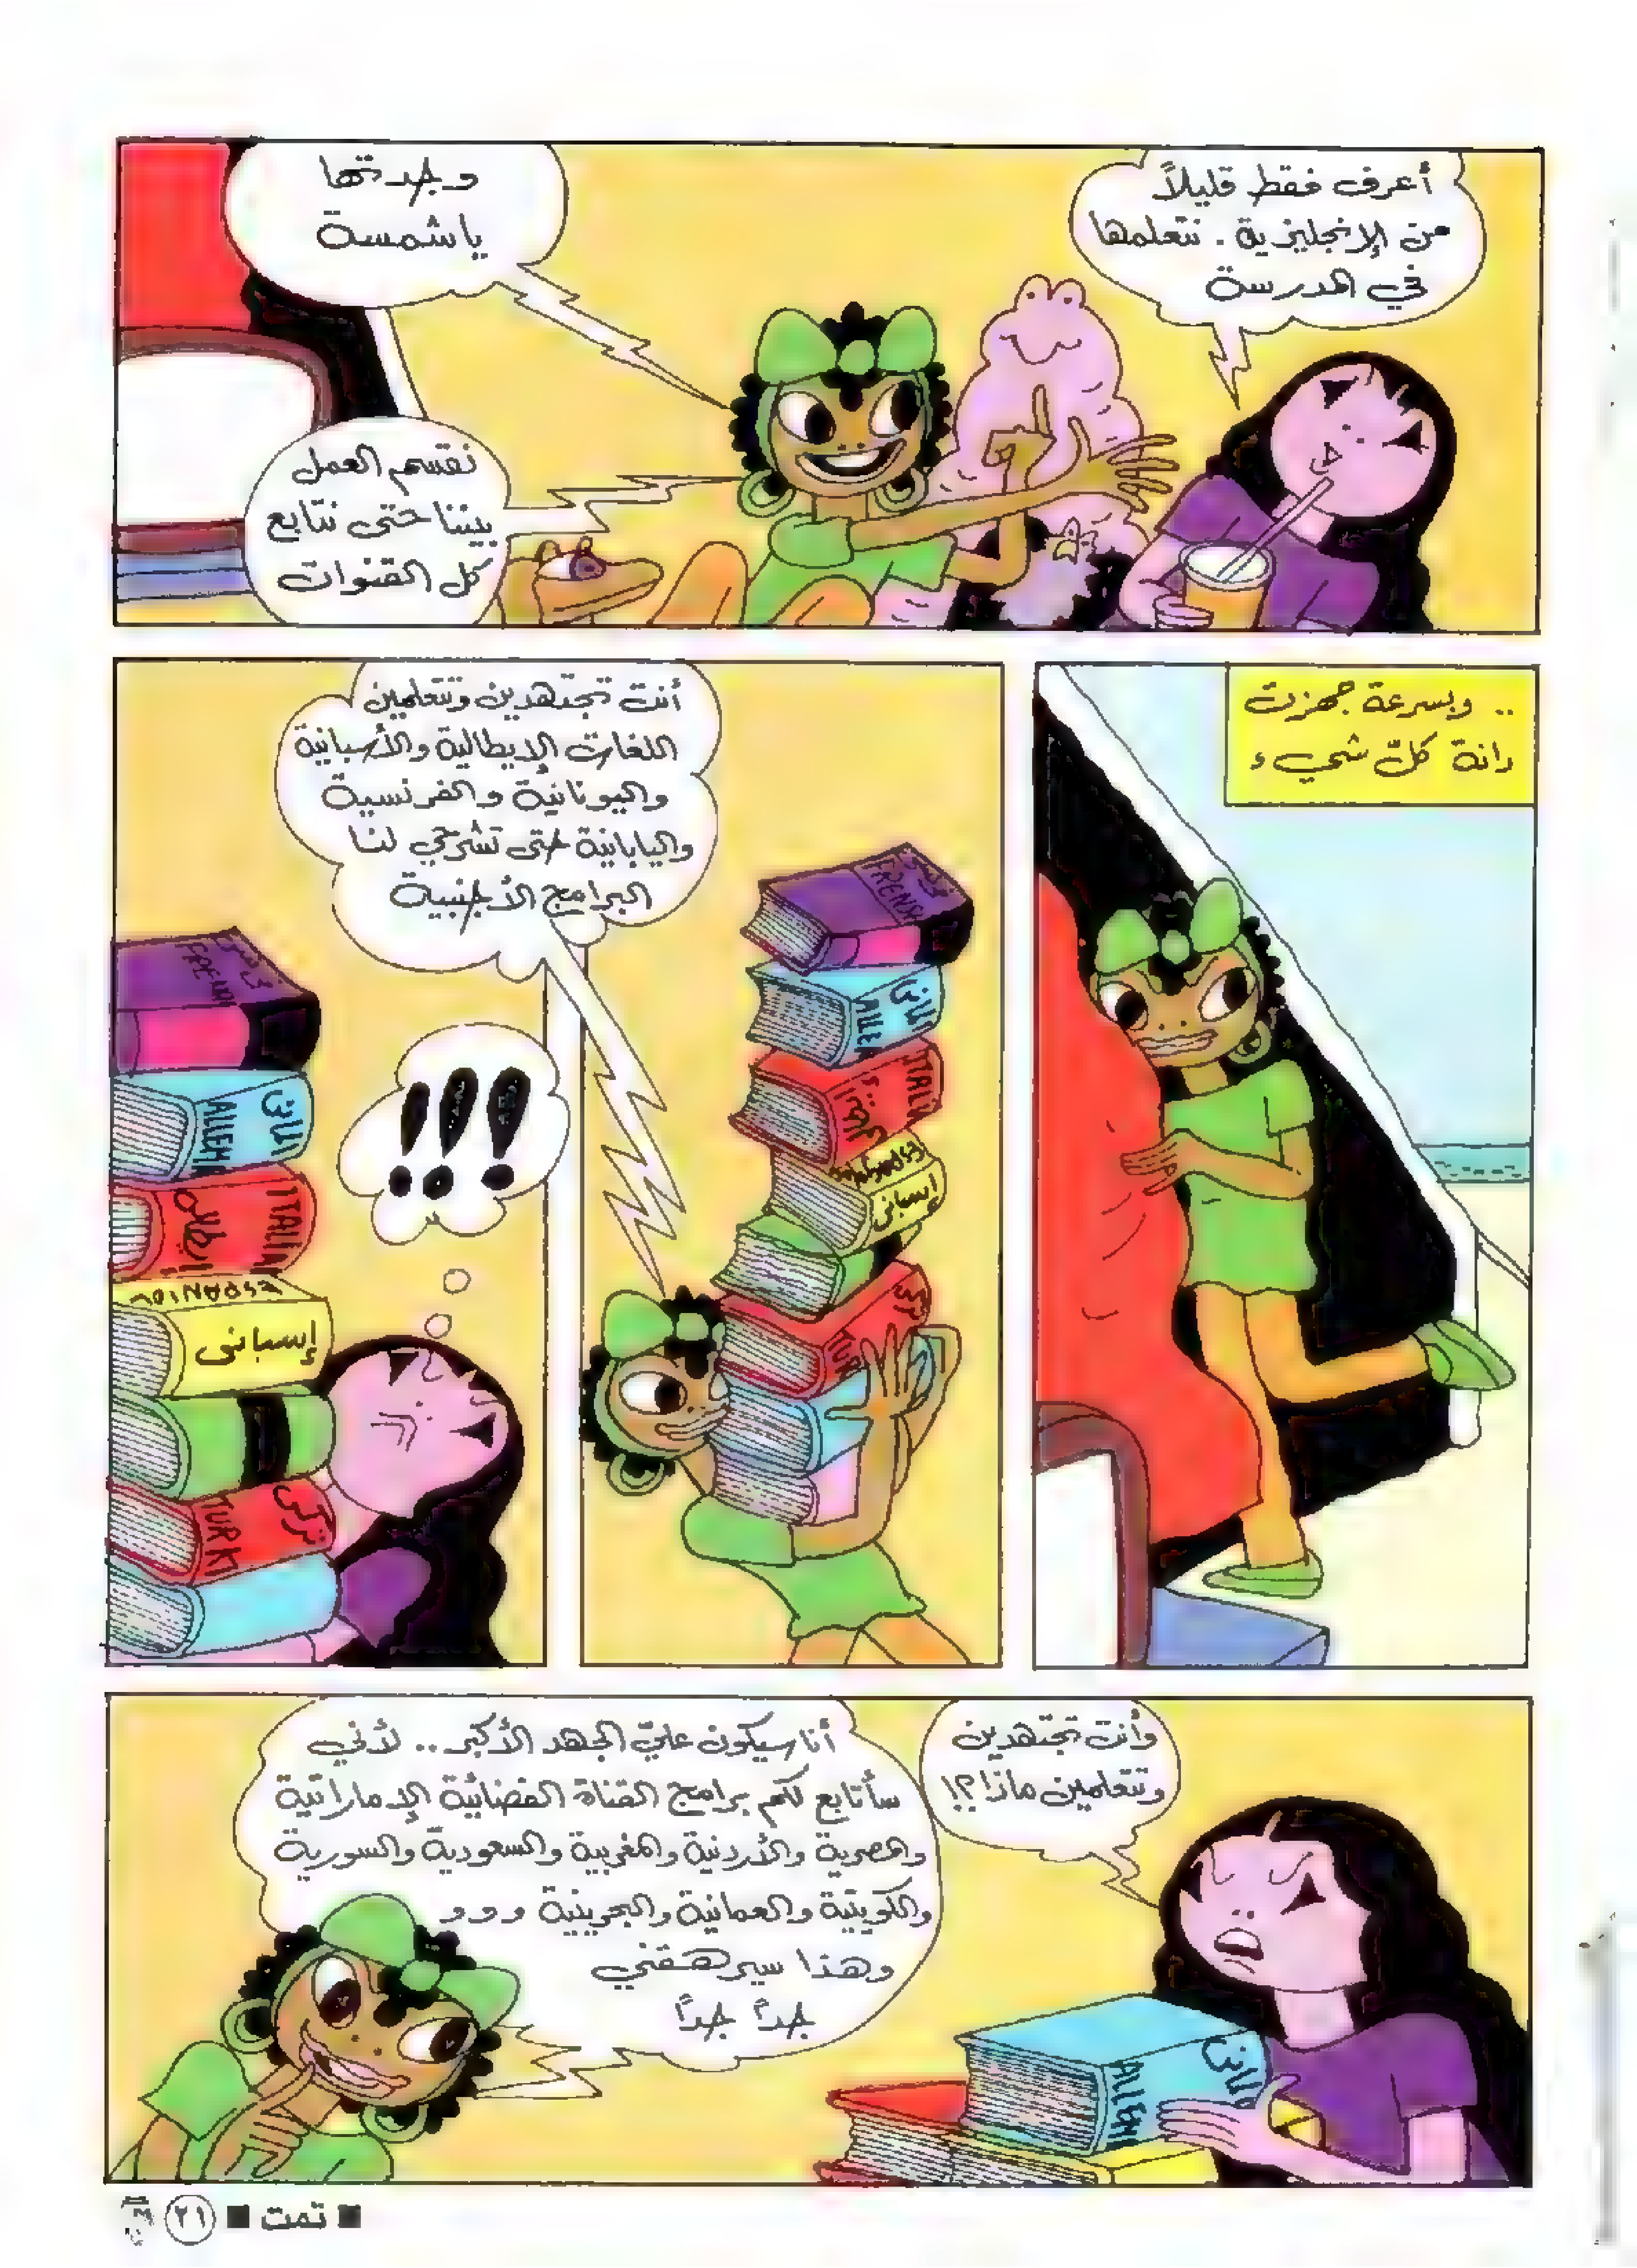 أعرف فقط قليلاً
من الإنجليزية . نتعلمها
في المدرسة
وجدتها
ياشمسة
نقسم العمل
بيننا حتى نتابع
كل القنوات
.. وبسرعة جهزت
دانة كلّ شيء
أنت تجتهدين وتتعلمين
اللغات الإيطالية والأسبانية
واليونانية والفرنسية
واليابانية حتى تشرحي لنا
البرامج الأجنبية
FRENSH
ألماني
ALLEM
ITALIA
إسباني
تركي
TUR
!!!
ألماني
ALLEMA
ITALIA
إيطالي
ESPANIOL
إسباني
تركي
TURKI
وأنت تجتهدين
وتتعلمين ماذا؟!
أنا سيكون عليّ الجهد الأكبر .. لأني
سأتابع لكم برامج القناة الفضائية الإماراتية
والمصرية والأردنية والمغربية والسعودية والسورية
والكويتية والعمانية والبحرينية و و و
وهذا سيرهقني
جداً جداً
ألماني
ALLEMA
■ تمت ■ ٢١